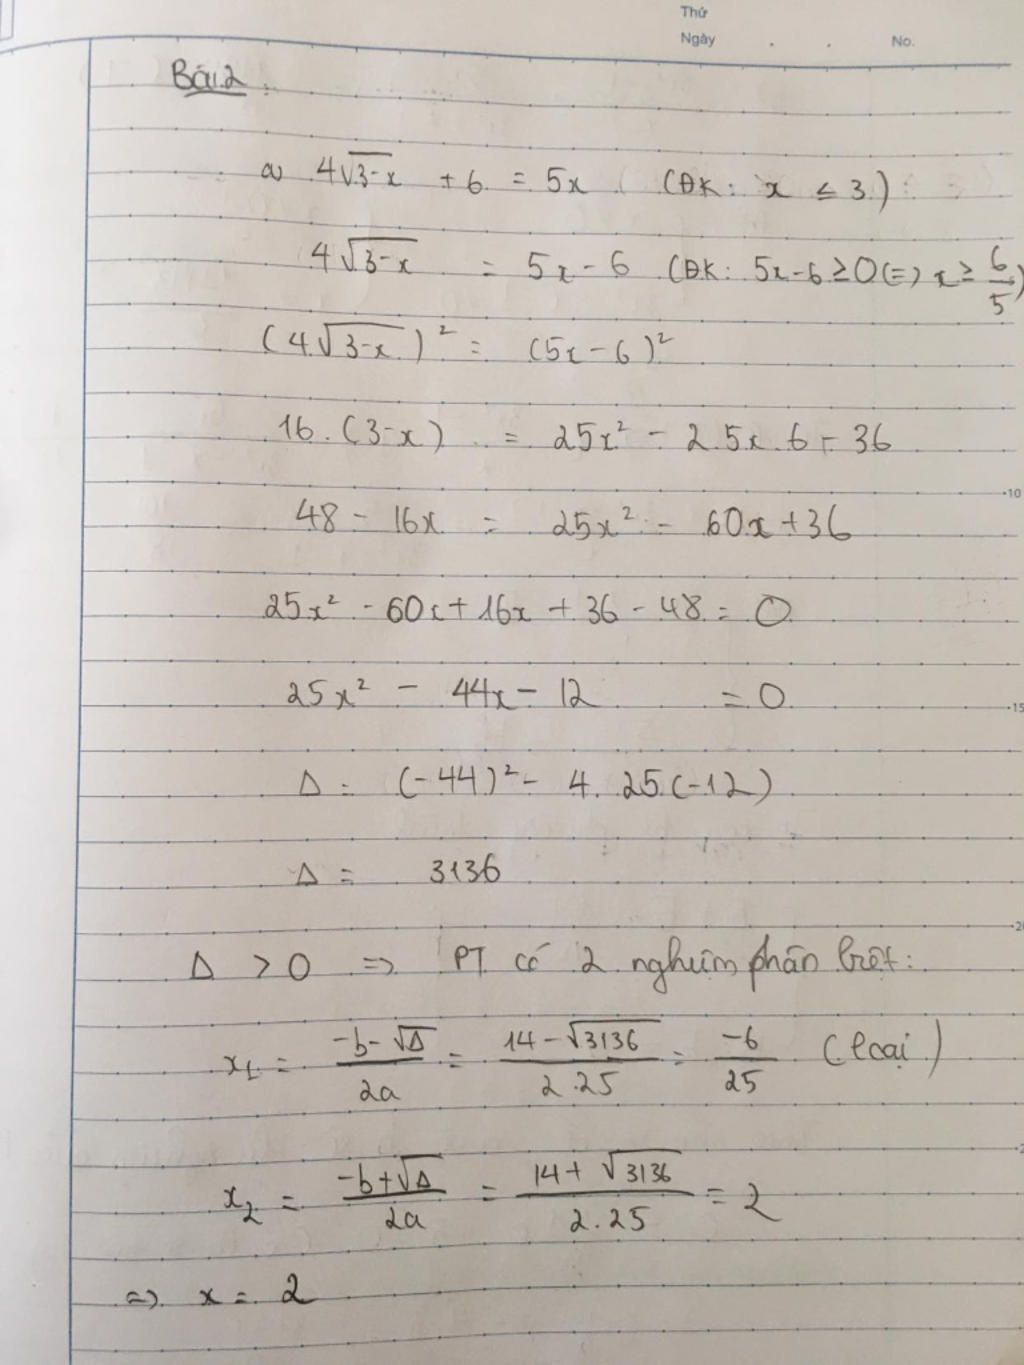 Thứ
Ngày . . No.
Bài 2 :
a) 4√(3-x) + 6 = 5x (ĐK: x ≤ 3)
4√(3-x) = 5x - 6 (ĐK: 5x-6 ≥ 0 (=) x ≥ 6/5)
(4√(3-x))² = (5x-6)²
16.(3-x) = 25x² - 2.5x.6 + 36
48 - 16x = 25x² - 60x + 36
10
25x² - 60x + 16x + 36 - 48 = 0
25x² - 44x - 12 = 0
15
Δ = (-44)² - 4.25.(-12)
Δ = 3136
Δ > 0 => PT có 2 nghiệm phân biệt:
x₁ = (-b-√Δ)/2a = (14-√3136)/2.25 = -6/25 (loại)
x₂ = (-b+√Δ)/2a = (14+√3136)/2.25 = 2
=> x = 2